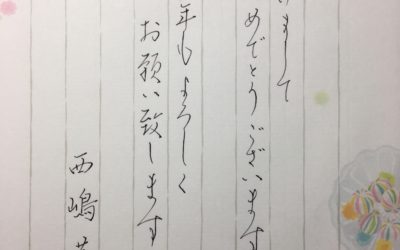 けまして
めでとうございます
年もよろしく
お願い致します
西嶋